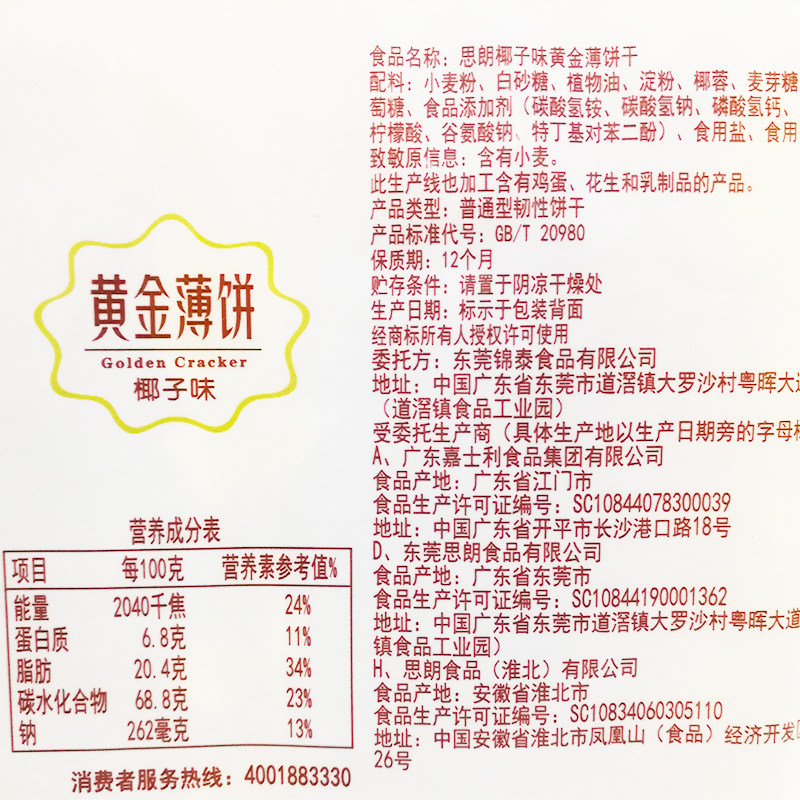 黄金薄饼
Golden Cracker
椰子味
营养成分表
项目 每100克 营养素参考值%
能量 2040千焦 24%
蛋白质 6.8克 11%
脂肪 20.4克 34%
碳水化合物 68.8克 23%
钠 262毫克 13%
消费者服务热线：4001883330
食品名称：思朗椰子味黄金薄饼干
配料：小麦粉、白砂糖、植物油、淀粉、椰蓉、麦芽糖
萄糖、食品添加剂（碳酸氢铵、碳酸氢钠、磷酸氢钙、
柠檬酸、谷氨酸钠、特丁基对苯二酚）、食用盐、食用
致敏原信息：含有小麦。
此生产线也加工含有鸡蛋、花生和乳制品的产品。
产品类型：普通型韧性饼干
产品标准代号：GB/T 20980
保质期：12个月
贮存条件：请置于阴凉干燥处
生产日期：标示于包装背面
经商标所有人授权许可使用
委托方：东莞锦泰食品有限公司
地址：中国广东省东莞市道滘镇大罗沙村粤晖大道
（道滘镇食品工业园）
受委托生产商（具体生产地以生产日期旁的字母标
A、广东嘉士利食品集团有限公司
食品产地：广东省江门市
食品生产许可证编号：SC10844078300039
地址：中国广东省开平市长沙港口路18号
D、东莞思朗食品有限公司
食品产地：广东省东莞市
食品生产许可证编号：SC10844190001362
地址：中国广东省东莞市道滘镇大罗沙村粤晖大道
镇食品工业园）
H、思朗食品（淮北）有限公司
食品产地：安徽省淮北市
食品生产许可证编号：SC10834060305110
地址：中国安徽省淮北市凤凰山（食品）经济开发区
26号